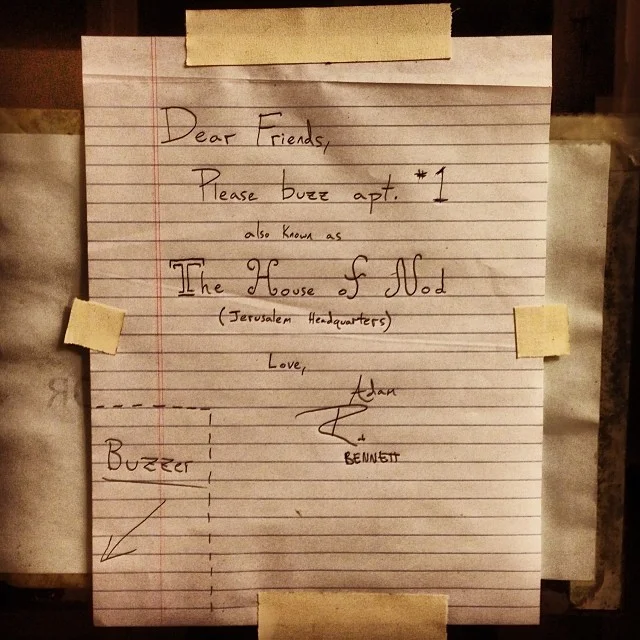 Dear Friends,
Please buzz apt. #1
also known as
The House of Nod
(Jerusalem Headquarters)
Love,
Adam
+
BENNETT
Buzzer